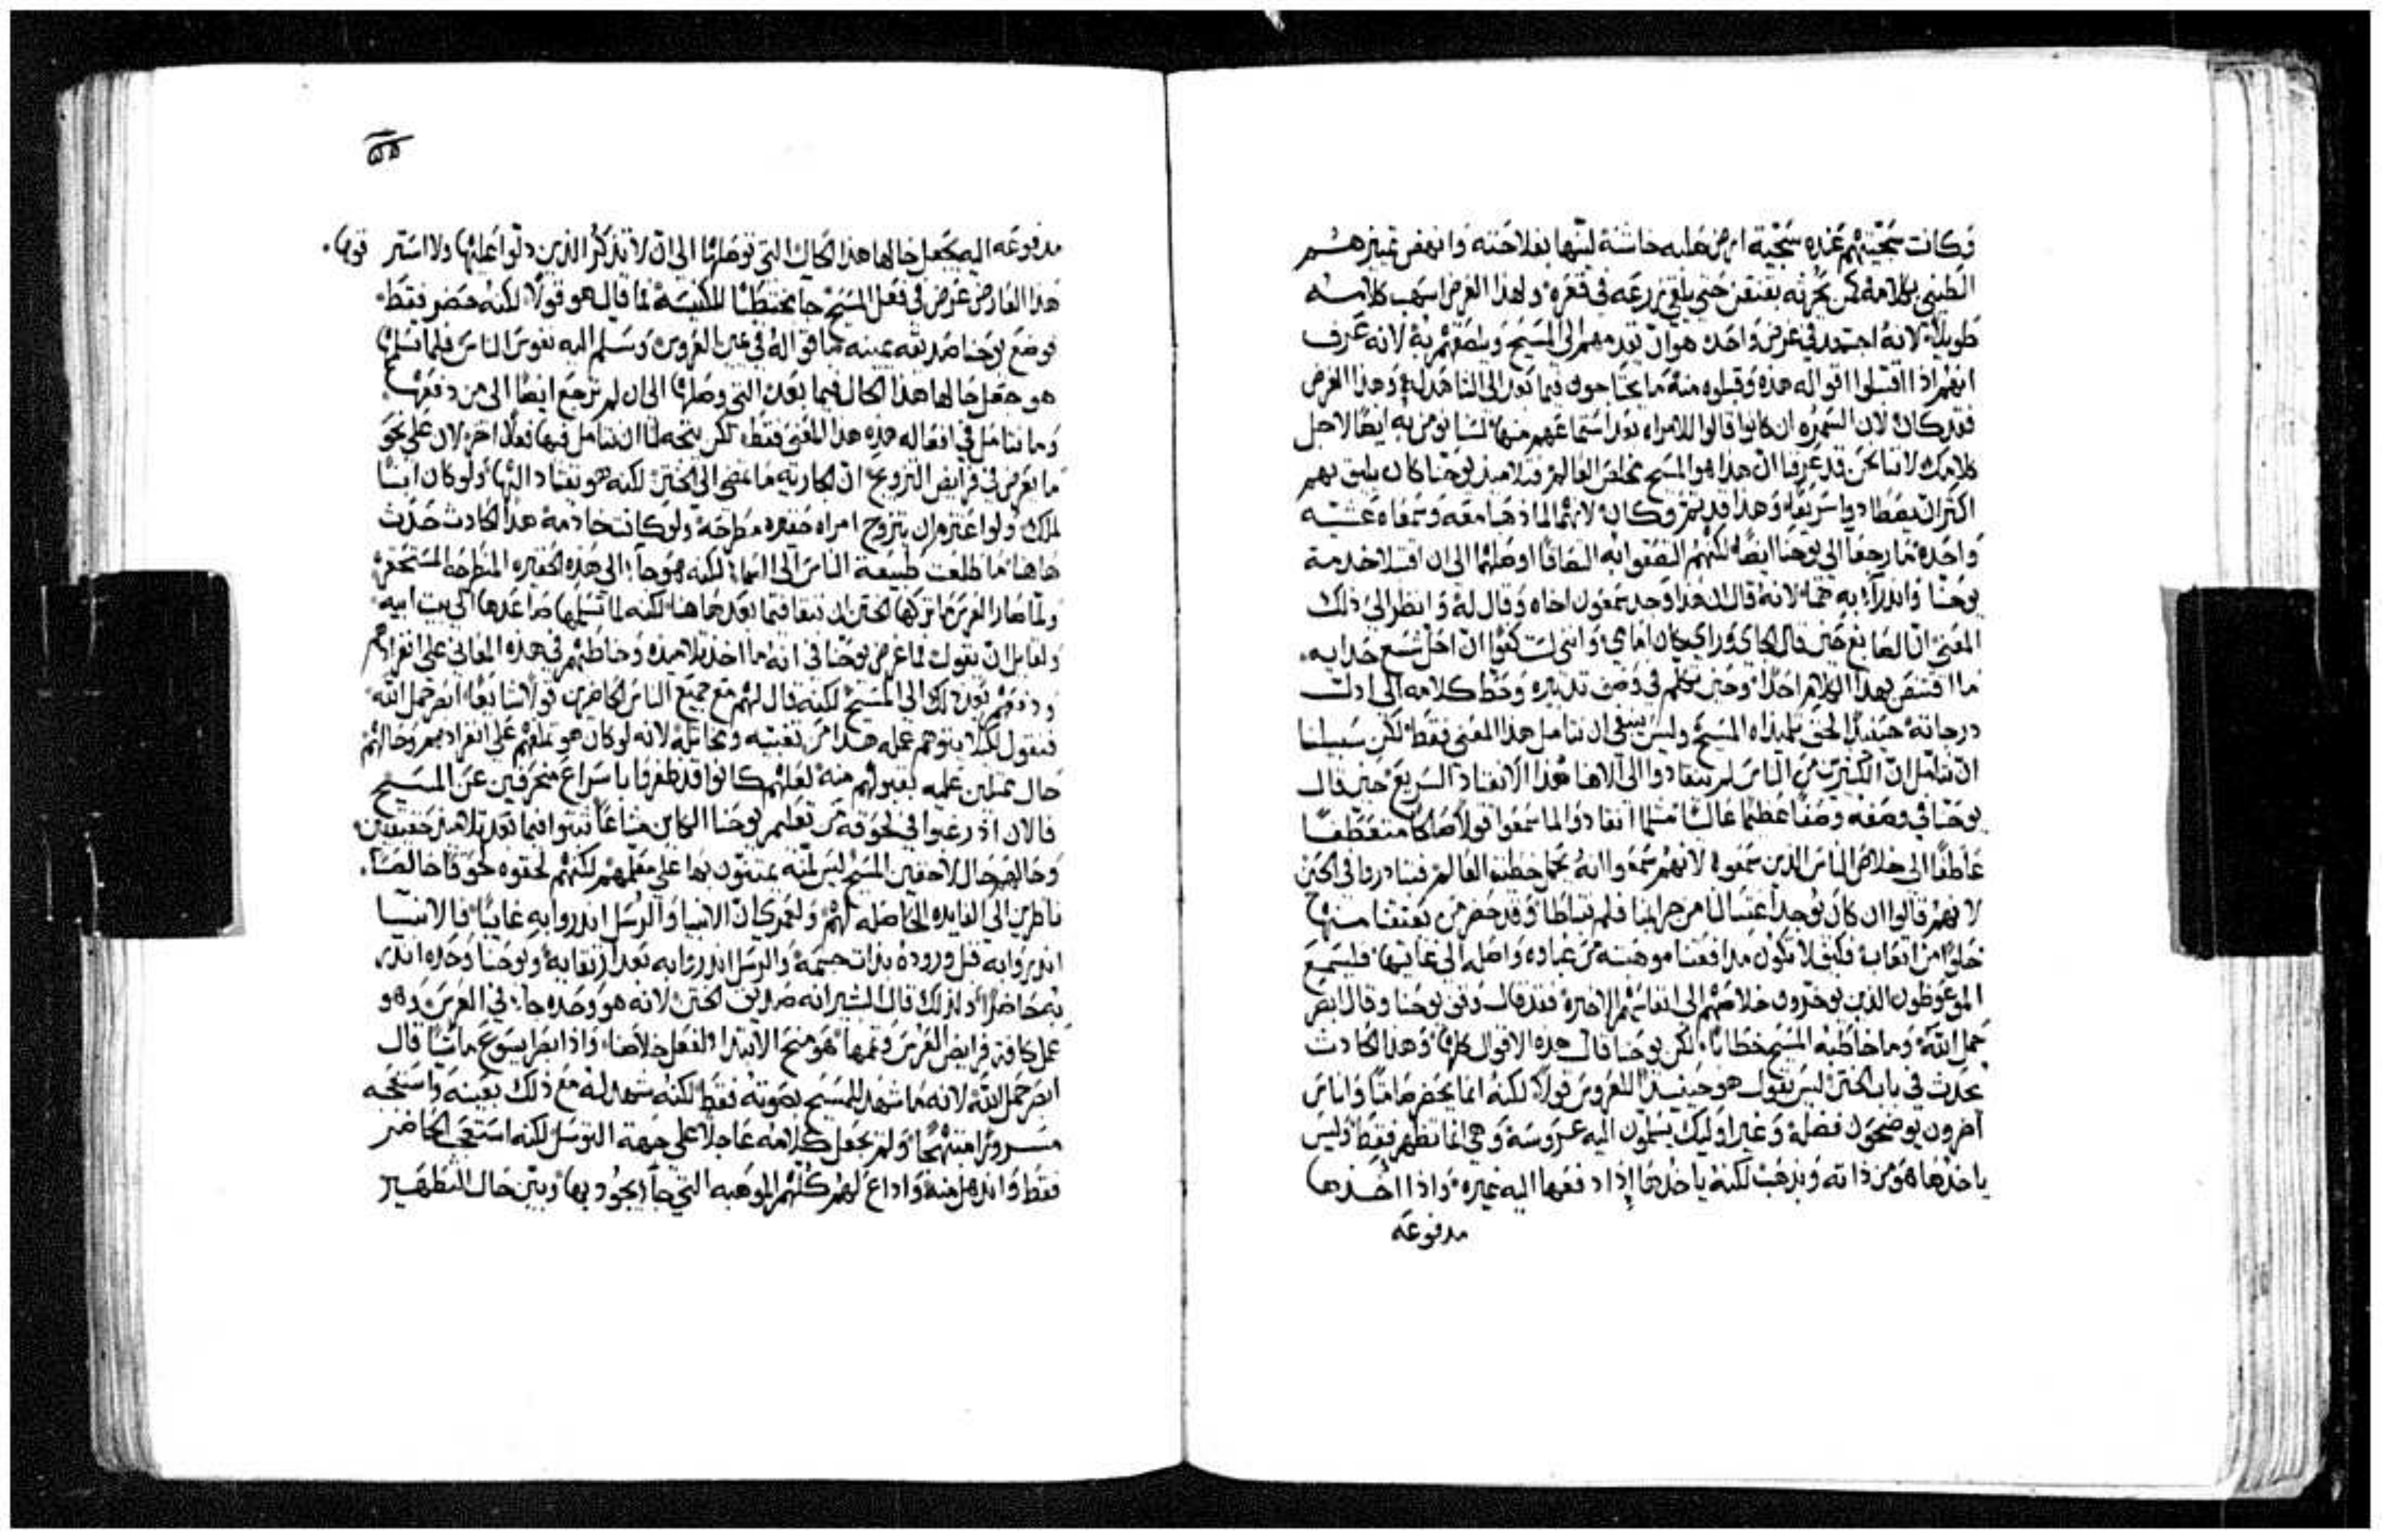 فكانت سجيتهم عنده سجية ارض صلبه خاشنة لينها بفلاحته وانهض تميزهم
الطيني بكلامه كمن يحرثه بفنقن حتي يلقي زرعه في قعره ولهذا الغرض اسهب كلامه
طويلا لانه اجتهد في غرض واحد هو ان تقدمهم الي المسيح ويلصقهم به لانه عرف
انهم اذا اقتبلوا اقواله هذه وقبلوه منه ما يحتاجون فيما بعد الي الشاهد له وهذا الغرض
فقد كان لان السمره ان كانوا قالوا للامراه بعد استماعهم منها لسنا نومن به ايضا لاجل
كلامك لاننا نحن قد عرفنا ان هذا هو المسيح مخلص العالم فتلاميذ يوحنا كان يليق بهم
اكثر ان يصطادوا سريعا وهذا قد تم وكان لانهما لما ذهبا معه وسمعاه عشيه
واحده ما رجعا الي يوحنا ايضا لكنهم التصقوا به التصاقا اوصلهما الي ان اقتبلا خدمة
يوحنا وانذرا به هما لانه قال ان هذا وجد سمعون اخاه وقال له وانظر الي ذلك
المعني ان الصابغ حين قال الجاي وراي كان امامي وانني لست كفوا ان احل شسع حذايه
ما اقتنص بهذا الكلام احدا وحين تكلم في وصف تدبيره وحط كلامه الي ادني
درجاته حينيذ لحق تلميذاه المسيح وليس ينبغي ان نتامل هذا المعني فقط لكن سبيلنا
ان نتامل ان الكثيرين من الناس لم ينقادوا الي الاهنا هذا الانقياد السريع حين قال
يوحنا في وصفه وصفا عظيما عاليا مثلما انقادوا لما سمعوا قولا صالحا متعطفا
عاطفا الي خلاص الناس الذين سمعوه لانهم سمعوا انه يحمل خطية العالم فتبادروا في الحين
لانهم قالوا ان كان يوجد اغتسالنا من جرايمنا فلم نتباطا وقد حضر من يعتقنا منها
خلوا من اتعابه فكيف لا تكون مدافعتنا موهبته من غباوه واصله الي غايتها فليسمع
الموعوظون الذين يوخرون خلاصهم الي انفاسهم الاخيره فقد قال وقف يوحنا وقال ابصر
حمل الله وما خاطبه المسيح خطابا لكن يوحنا قال هذه الاقوال كلها وهذا الحادث
يحدث في باب الختن ليس يقول هو حينيذ للعروس قولا لكنه انما يحضر صامتا واناس
اخرون يوضحون فضله وغير اوليك يسلمون اليه عروسة وهي انما تظهر فقط وليس
ياخذها هو من ذاته ويذهب لكنه ياخذها اذا دفعها اليه غيره واذا اخذها
مدفوعه
٥٥
مدفوعه اليه يجعل حالها هذا الحال التي توصلها الي ان لا تذكر الذين ولوا عملها ولا استر قوتها
هذا العارض عرض في فعل المسيح جا مختطبا للكنيسة فما قال هو قولا لكنه حضر فقط
فوضع يوحنا صديقه يمينه باقواله في يمين العروس وسلم اليه نفوس الناس فلما تسلمها
هو جعل حالها هذا الحال فيما بعد التي وصلها الي ان لم ترجع ايضا الي من دفعها
وما نتامل في افعاله هذه هذا المعني فقط لكن يتجه لنا ان نتامل فيها فعلا اخر لان علي نحو
ما يعرض في فرايض التزويج ان الجاريه ما تمضي الي الختن لكنه هو يقتاد اليها ولو كان ابن
ملك ولو اعتزم ان يتزوج امراه حقيره مطرحه ولو كانت خادمه هذا الحادث حدث
هاهنا ما طلعت طبيعة الناس الي السما لكنه هو جا الي هذه الحقيره المنطرحه المستحقره
ولما صار العرس ما تركها الختن ان تبقا فيما بعد هاهنا لكنه لما تسلمها صاعدها الي بيت ابيه
ولقايل ان يقول فما غرض يوحنا في انه ما اخذ تلاميذه وخاطبهم في هذه المعاني علي انفرادهم
ودفعهم بعد ذلك الي المسيح لكنه قال لهم مع جميع الناس الحاضرين قولا شايعا ابصر حمل الله
فنقول لكيلا يتوهم عمله هذا من تعبيه ومخاتلة لانه لو كان هو تملقهم علي انفرادهم وحالهم
حال ممتنين عليه بقبولهم منه لعلهم كانوا قد ظفروا باسراع منحرفين عن المسيح
فالان اذ رغبوا في لحوقه من تعليم يوحنا الكاين مشاعا ثبتوا فيما بعد تلاميذ حقيقيين
وحالهم حال لاحقين المسيح ليس لمنه يمتنون بها علي معلمهم لكنهم لحقوه لحوقا خالصا
ناظرين الي الفايده الحاصله لهم ولعمري ان الانبيا والرسل انذروا به غايبا فالانبيا
انذروا به قبل وروده بذات جسمه والرسل انذروا به بعد ارتقايه ويوحنا وحده انذر
به حاضرا ولذلك قال البشير انه صديق الختن لانه هو وحده جا في العرس وهو
عمل كافة فرايض العرس وتممها هو منح الابتدا لفعل خلاصنا واذا ابصر يسوع ماشيا قال
ابصر حمل الله لانه ما شهد للمسيح بصوته فقط لكنه شهد له مع ذلك بعينه واستعجبه
مسرورا مبتهجا ولم يجعل كلامه عاجلا علي جهة التوسل لكنه استعجب الحاضر
فقط وانذهل منه واذاع لهم كلهم الموهبه التي جا يجود بها وبين حال التطهير